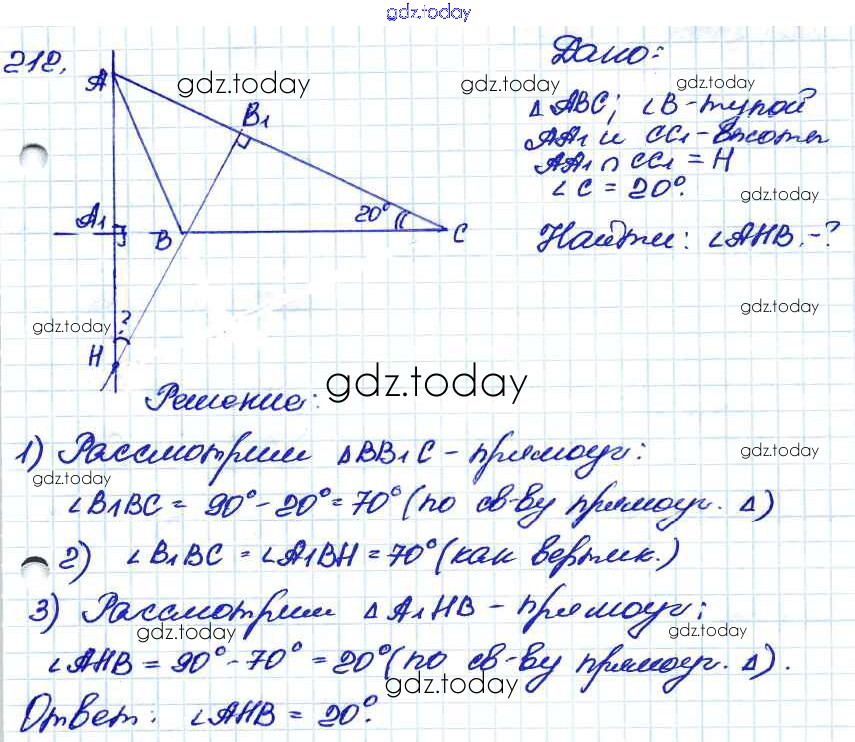 gdz.today
212.
Дано:
A
gdz.today
gdz.today
gdz.today
B1
△ABC; ∠B-тупой
AA1 и CC1-высоты
AA1 ∩ CC1 = H
∠C = 20°.
gdz.today
20°
A1
B
C
Найти: ∠AHB.-?
gdz.today
gdz.today
?
H
gdz.today
Решение:
1) Рассмотрим △BB1C - прямоуг:
gdz.today
gdz.today
∠B1BC = 90°- 20°= 70° (по св-ву прямоуг. △)
2) ∠B1BC = ∠A1BH = 70° (как вертик.)
3) Рассмотрим △A1HB - прямоуг;
gdz.today
gdz.today
∠AHB = 90°- 70° = 20° (по св-ву прямоуг. △).
gdz.today
Ответ: ∠AHB = 20°.